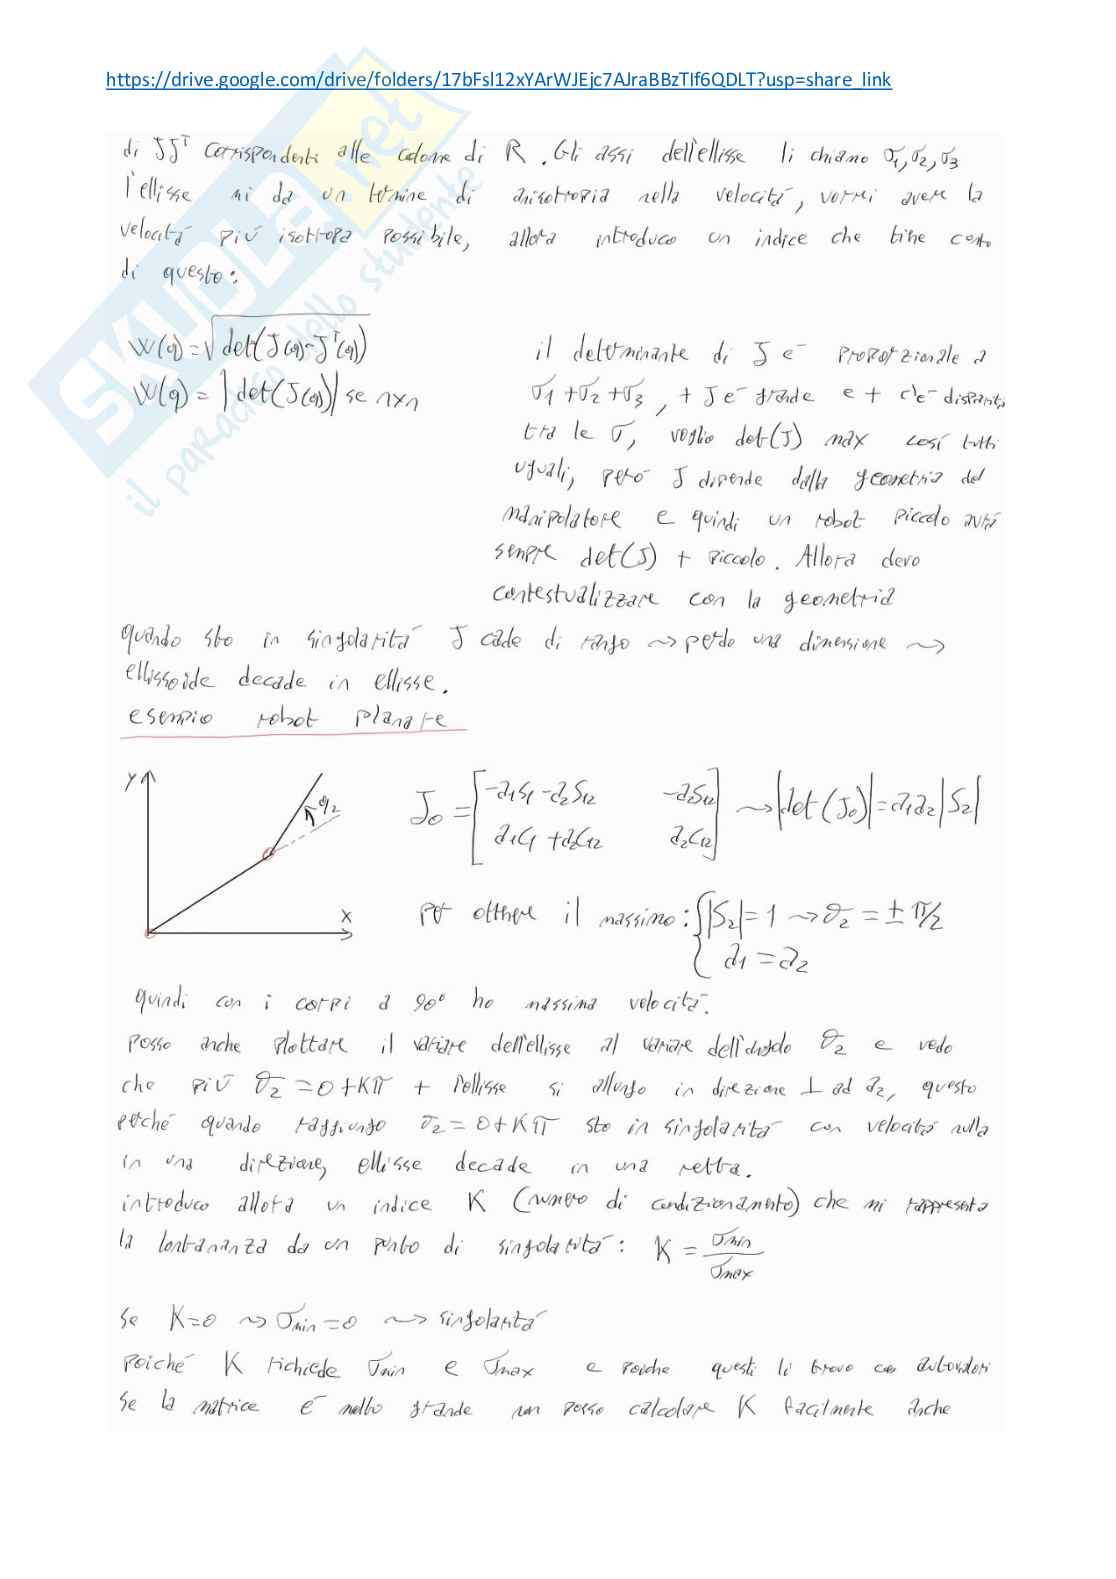 https://drive.google.com/drive/folders/17bFsl12xYArWJEjc7AJraBBzTIf6QDLT?usp=share_link
SKUOLA.net
il paradiso dello studente
di JJᵀ corrispondenti alle colonne di R. Gli assi dell'ellisse li chiamo σ1, σ2, σ3
l'ellisse mi da un termine di anisotropia nella velocitá, vorrei avere la
velocitá piú isotropa possibile, allora introduco un indice che tiene conto
di questo:
W(q)=√det(J(q)·Jᵀ(q))
W(q) = |det(J(q))| se nxn
il determinante di J e' proporzionale a
σ1+σ2+σ3, + J e' grande e + c'e' disparitá
tra le σ, voglio det(J) max cosí tutti
uguali, peró J dipende dalla geometria del
manipolatore e quindi un robot piccolo avrá
sempre det(J) + piccolo. Allora devo
contestualizzare con la geometria
quando sto in singolaritá J cade di rango ⇝ perdo una dimensione ⇝
ellissoide decade in ellisse.
esempio robot planare
Y
q2
X
J0 = [-a1s1-a2s12 -a2s12
a1c1+a2c12 a2c12] ⇝ |det(J0)|=a1a2|s2|
per ottenere il massimo: {|s2|=1 ⇝ θ2=±π/2
a1=a2
quindi con i corpi a 90° ho massima velocitá.
posso anche plottare il variare dell'ellisse al variare dell'angolo θ2 e vedo
che piú θ2=0+Kπ + l'ellisse si allunga in direzione ⊥ ad a2, questo
perché quando raggiungo θ2=0+Kπ sto in singolaritá con velocitá nulla
in una direzione, ellisse decade in una retta.
introduco allora un indice K (numero di condizionamento) che mi rappresenta
la lontananza da un punto di singolaritá: K = σmin/σmax
se K=0 ⇝ σmin=0 ⇝ singolaritá
poiché K richiede σmin e σmax e poiche questi li trovo con autovalori
se la matrice é molto grande non posso calcolare K facilmente anche